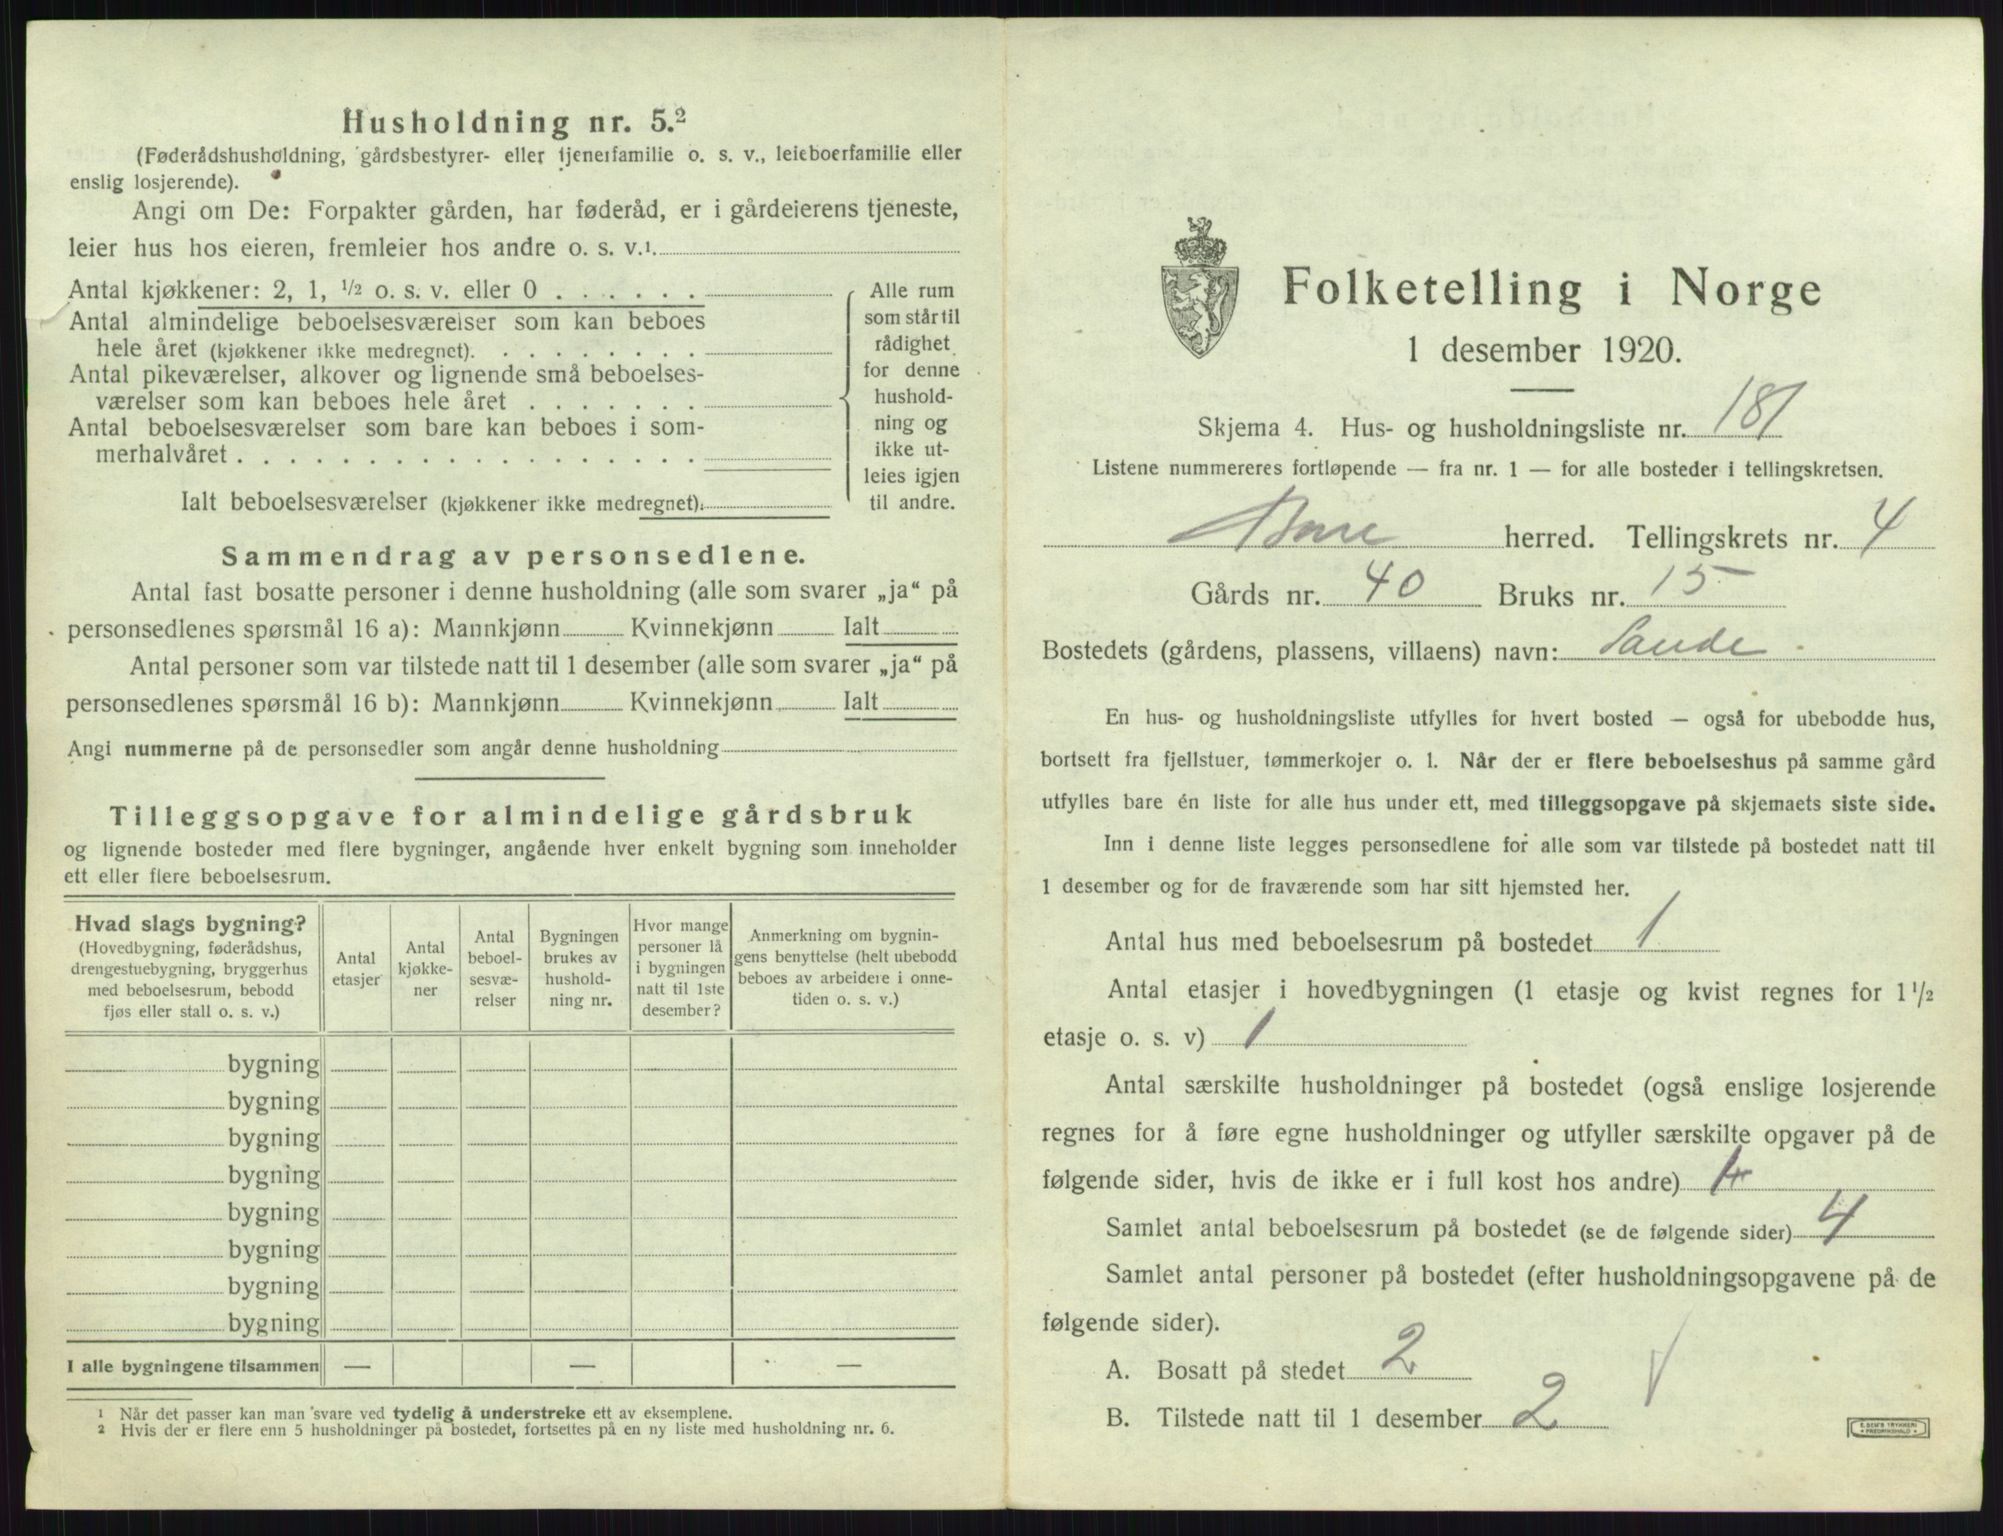 Husholdning nr. 5.²
(Føderådshusholdning, gårdsbestyrer- eller tjenerfamilie o. s. v., leieboerfamilie eller
enslig losjerende).
Angi om De: Forpakter gården, har føderåd, er i gårdeierens tjeneste,
leier hus hos eieren, fremleier hos andre o. s. v.¹
Antal kjøkkener: 2, 1, 1/2 o. s. v. eller 0 . . . . . .
Antal almindelige beboelsesværelser som kan beboes
hele året (kjøkkener ikke medregnet). . . . . . . . .
Antal pikeværelser, alkover og lignende små beboelses-
værelser som kan beboes hele året . . . . . . .
Antal beboelsesværelser som bare kan beboes i som-
merhalvåret . . . . . . . . . . . . . . . . . .
Ialt beboelsesværelser (kjøkkener ikke medregnet):
Alle rum
som står til
rådighet
for denne
hushold-
ning og
ikke ut-
leies igjen
til andre.
Sammendrag av personsedlene.
Antal fast bosatte personer i denne husholdning (alle som svarer „ja“ på
personsedlenes spørsmål 16 a): Mannkjønn Kvinnekjønn Ialt
Antal personer som var tilstede natt til 1 desember (alle som svarer „ja“ på
personsedlenes spørsmål 16 b): Mannkjønn Kvinnekjønn Ialt
Angi nummerne på de personsedler som angår denne husholdning
Tilleggsopgave for almindelige gårdsbruk
og lignende bosteder med flere bygninger, angående hver enkelt bygning som inneholder
ett eller flere beboelsesrum.
Hvad slags bygning?
(Hovedbygning, føderådshus,
drengestuebygning, bryggerhus
med beboelsesrum, bebodd
fjøs eller stall o. s. v.)
Antal
etasjer
Antal
kjøkke-
ner
Antal
beboel-
sesvæ-
relser
Bygningen
brukes av
hushold-
ning nr.
Hvor mange
personer lå
i bygningen
natt til 1ste
desember?
Anmerkning om bygnin-
gens benyttelse (helt ubebodd
beboes av arbeidere i onne-
tiden o. s. v.)
bygning
bygning
bygning
bygning
bygning
bygning
bygning
bygning
I alle bygningene tilsammen — — —
¹ Når det passer kan man svare ved tydelig å understreke ett av eksemplene.
² Hvis der er flere enn 5 husholdninger på bostedet, fortsettes på en ny liste med husholdning nr. 6.
Folketelling i Norge
1 desember 1920.
Skjema 4. Hus- og husholdningsliste nr. 181
Listene nummereres fortløpende — fra nr. 1 — for alle bosteder i tellingskretsen.
Borre herred. Tellingskrets nr. 4
Gårds nr. 40 Bruks nr. 15
Bostedets (gårdens, plassens, villaens) navn: Sande
En hus- og husholdningsliste utfylles for hvert bosted — også for ubebodde hus,
bortsett fra fjellstuer, tømmerkojer o. l. Når der er flere beboelseshus på samme gård
utfylles bare én liste for alle hus under ett, med tilleggsopgave på skjemaets siste side.
Inn i denne liste legges personsedlene for alle som var tilstede på bostedet natt til
1 desember og for de fraværende som har sitt hjemsted her.
Antal hus med beboelsesrum på bostedet 1
Antal etasjer i hovedbygningen (1 etasje og kvist regnes for 1 1/2
etasje o. s. v) 1
Antal særskilte husholdninger på bostedet (også enslige losjerende
regnes for å føre egne husholdninger og utfyller særskilte opgaver på de
følgende sider, hvis de ikke er i full kost hos andre)
Samlet antal beboelsesrum på bostedet (se de følgende sider) 4
Samlet antal personer på bostedet (efter husholdningsopgavene på de
følgende sider).
A. Bosatt på stedet 2
B. Tilstede natt til 1 desember 2
E. SEM'S TRYKKERI
FREDRIKSHALD